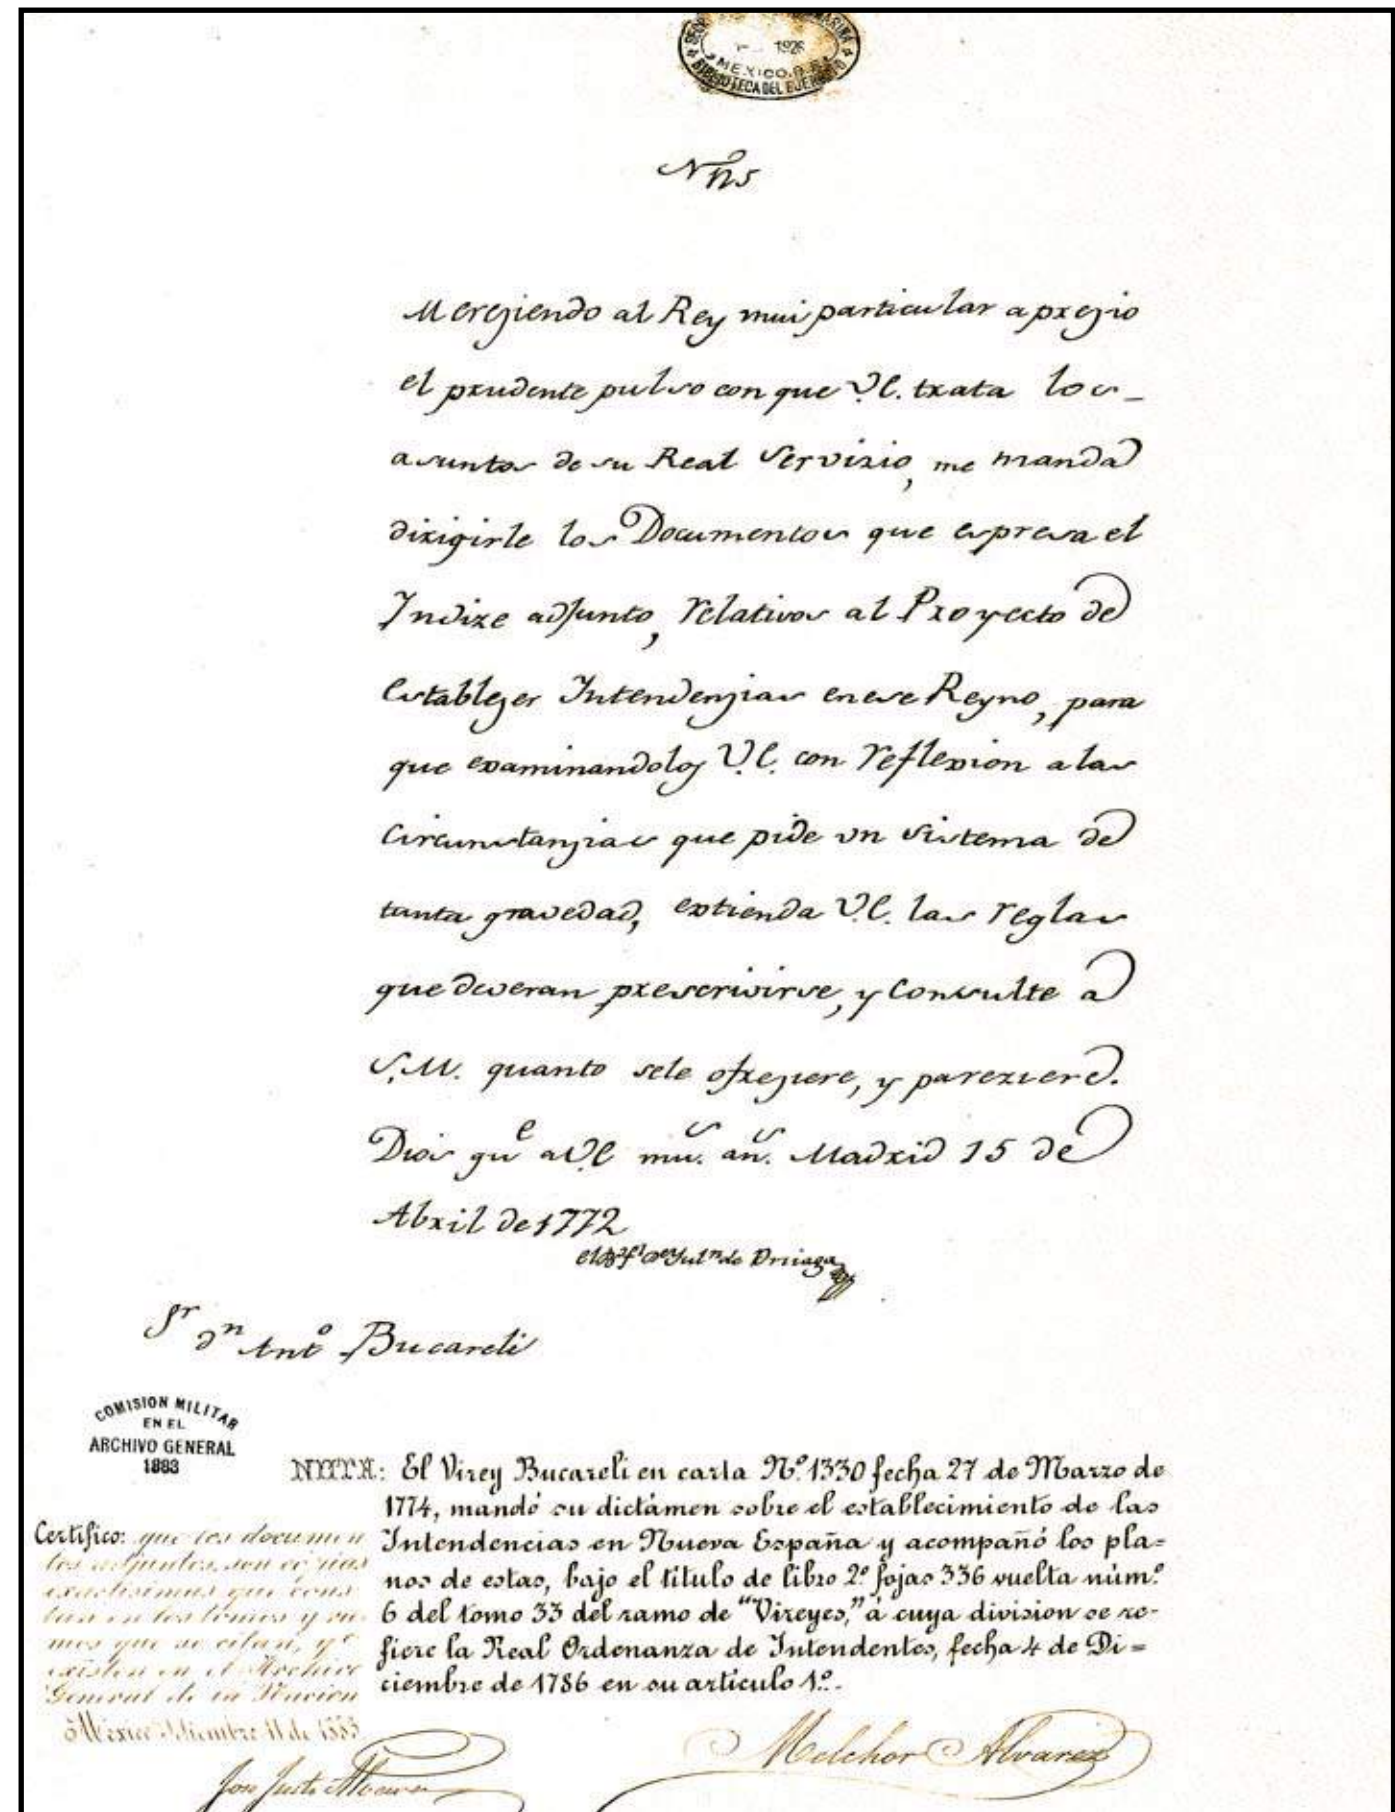 1926
MEXICO, D.F.
BIBLIOTECA DEL EJERCITO
Mereziendo al Rey mui particular aprezio
el prudente pulso con que V.E. trata los
asuntos de su Real Servizio, me manda
dirigirle los Documentos que espresa el
Indize adjunto, relativos al Proyecto de
establezer Intendenzias en ese Reyno, para
que examinandolos V.E. con reflexion a las
Circunstanzias que pide vn Sistema de
tanta gravedad, extienda V.E. las reglas
que deveran prescrivirse, y Consulte a
S.M. quanto sele ofreziere, y pareziere.
Dios gue a V.E. ms. as. Madrid 15 de
Abril de 1772
de Arriaga
Sr dn Anto Bucareli
COMISION MILITAR
EN EL
ARCHIVO GENERAL
1883
NOTA: El Virey Bucareli en carta Nº 1330 fecha 27 de Marzo de
1774, mandó su dictámen sobre el establecimiento de las
Intendencias en Nueva España y acompañó los pla=
nos de estas, bajo el título de libro 2º fojas 336 vuelta núm.º
6 del tomo 33 del ramo de "Vireyes," á cuya division se re-
fiere la Real Ordenanza de Intendentes, fecha 4 de Di=
ciembre de 1786 en su articulo 1º.
Certifico: que los documen
tos adjuntos, son copias
exactisimas que cons
tan en los tomos y ra
mos que se citan, y q.e
existen en el Archivo
General de la Nacion
México Setiembre 11 de 1883
Melchor Alvarez
José Justo Alvarez